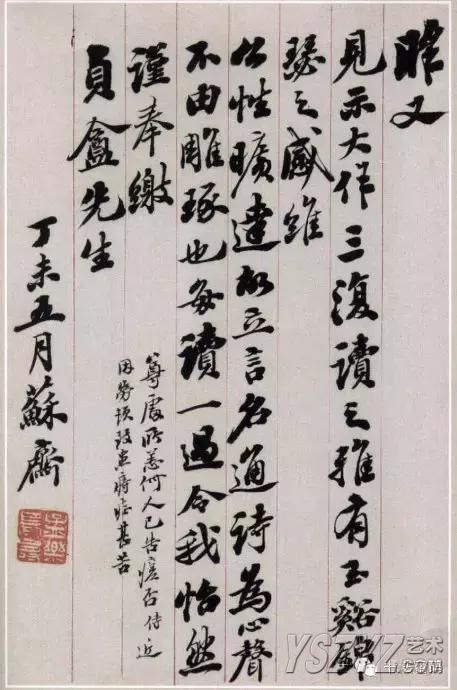 昨又
見示大作三復讀之雅有玉谿錦
瑟之感維
公性曠達故立言名通詩為心聲
不由雕琢也每讀一過令我怡然
謹奉繳
貞盦先生
尊處所恙何人已告瘥否侍近
因勞頓致患痔症甚苦
丁未五月蘇齋
艺术